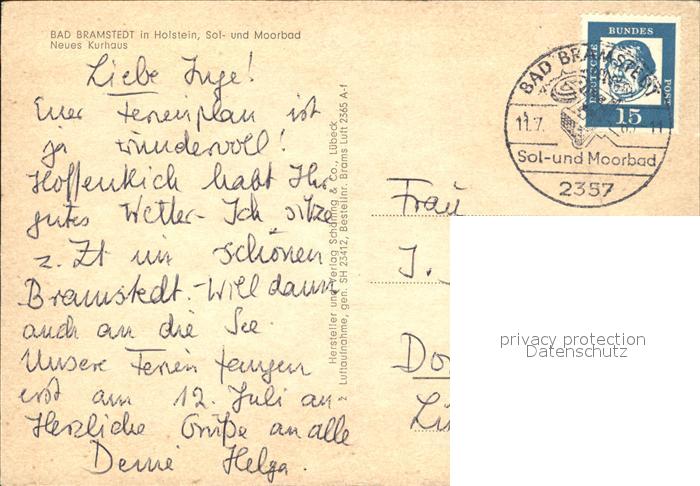 BAD BRAMSTEDT in Holstein, Sol- und Moorbad
Neues Kurhaus
Liebe Inge!
Euer Ferienplan ist
ja wundervoll!
Hoffentlich habt Ihr
gutes Wetter. Ich sitze
z. Zt im schönen
Bramstedt. Will dann
auch an die See.
Unsere Ferien fangen
erst am 12. Juli an.
Herzliche Grüße an alle
Deine Helga.
Hersteller und Verlag Schöning & Co., Lübeck
Luftaufnahme, gen. SH 23412, Bestellnr. Brams Luft 2365 A-f
DEUTSCHE BUNDES POST
15
BAD BRAMSTEDT
11.7.
Sol-und Moorbad
2357
Frau
J.
privacy protection
Datenschutz